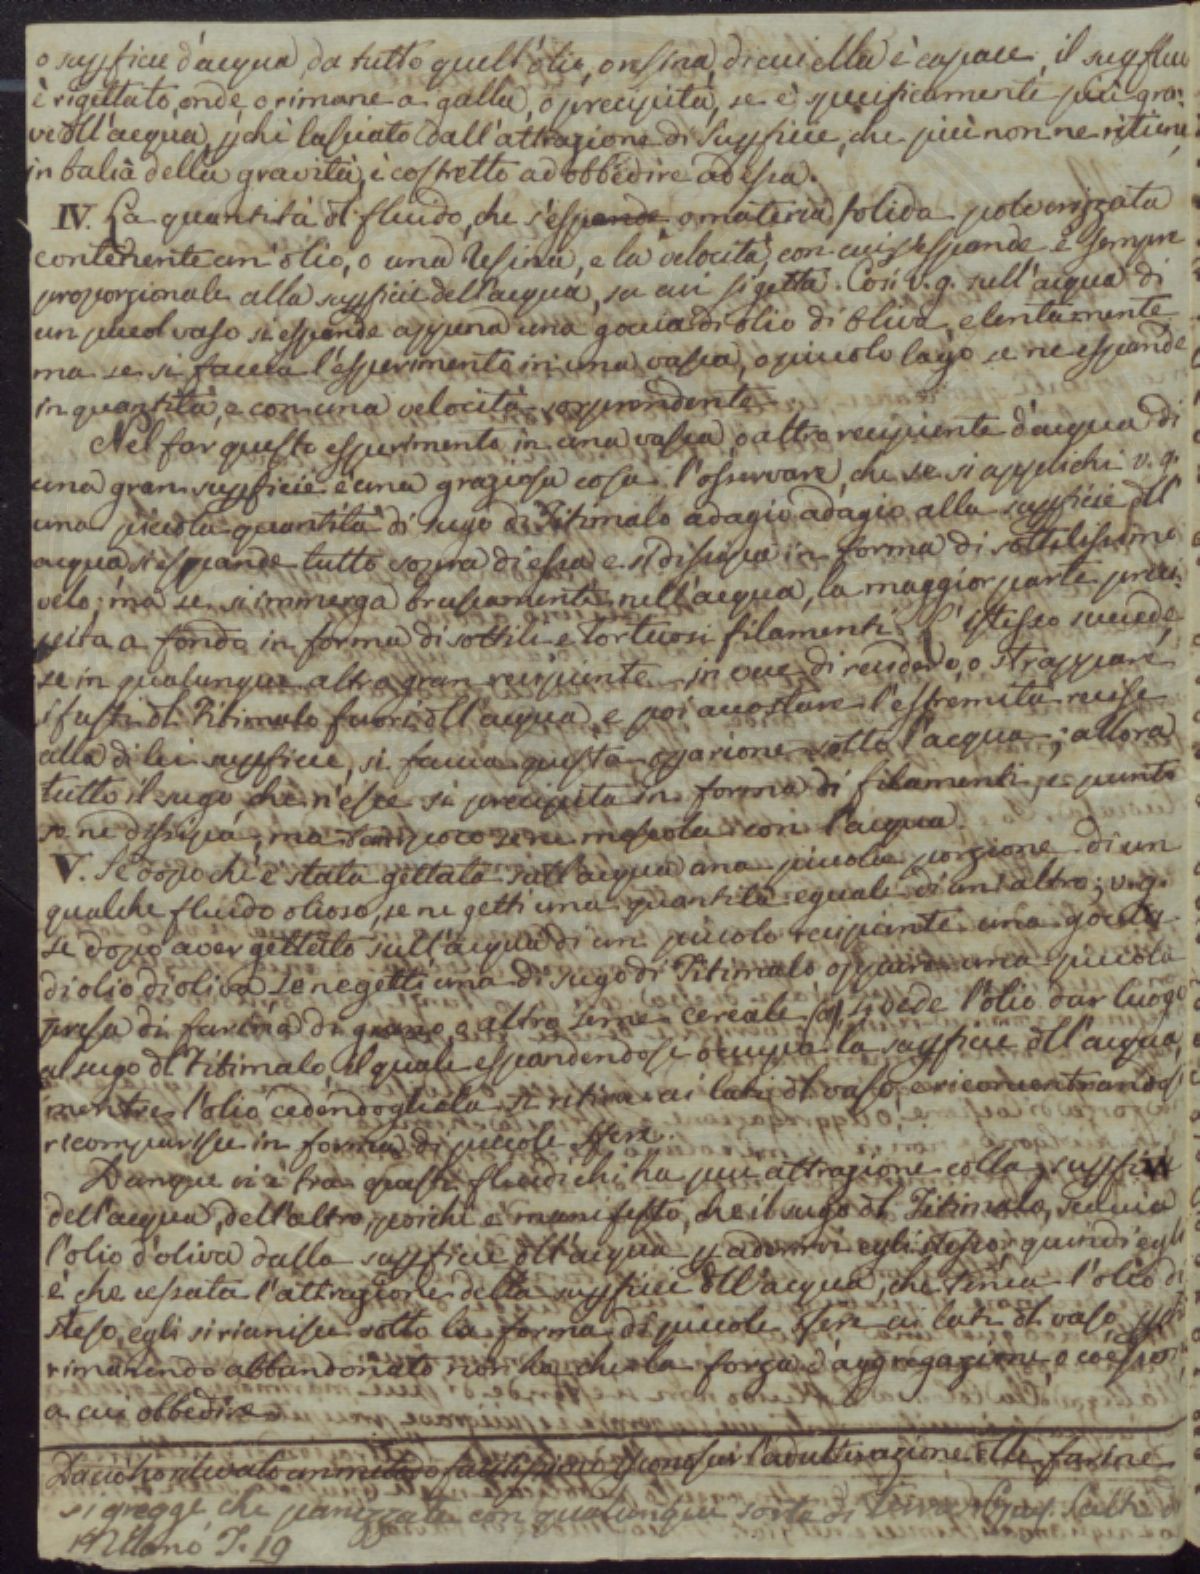 o supficie d'acqua da tutto quell'olio, o resina, di cui ella è capace, il supfluo
è rigettato, onde o rimane a galla, o precipita, se è specificamente più gra-
ve dll'acqua, pchè lasciato dall'attrazione di supficie, che più non ne ritiene,
in balià della gravità, è costretto ad obbedire ad essa.
IV. La quantità dl fluido, che s'espande, o materia solida polverizzata
contenente un'olio, o una resina, e la velocità, con cui s'espande è sempre
proporzionale alla supficie dell'acqua, su cui si getta. Così v.g. sull'acqua di
un piccol vaso si espande appena una goccia di olio di oliva, e lentamente
ma se si faccia l'esperimento in una vasca, o piccolo lago se ne espande
in quantità, e con una velocità sorprendente.
Nel far questo esperimento in una vasca o altro recipiente d'acqua di
una gran supficie è una graziosa cosa l'osservare, che se si applichi v.g.
una piccola quantità di sugo di Titimalo adagio adagio alla supficie dll'
acqua si espande tutto sopra di essa e si dissipa in forma di sottilissimo
velo; ma se si immerga bruscamente nell'acqua, la maggior parte preci-
pita a fondo in forma di sottili e tortuosi filamenti. L'istesso succede,
se in qualunque altro gran recipiente in vece di recidere, o strappare
i fusti dl Titimalo fuori dll'acqua, e poi accostare l'estremità recise
alla di lei supficie, si faccia questa opazione sotto l'acqua; allora
tutto il sugo, che n'esce si precipita in forma di filamenti, e punto
se ne dissipa, ma poco se ne mescola con l'acqua.
V. Se dopo ch'è stata gettata sull'acqua una piccola porzione di un
qualche fluido olioso, se ne getti una quantità eguale di un'altro; v.g.
se dopo aver gettato sull'acqua di un piccolo recipiente una goccia
di olio di oliva se ne getti una di sugo di Titimalo oppure una piccola
presa di farina di grano, o altro seme cereale si vede l'olio dar luogo
al sugo dl Titimalo, il quale espandendosi occupa la supficie dll'acqua,
mentre l'olio cedendogliela si ritira ai lati dl vaso, e riconcentrandosi
ricomparisce in forma di piccole sfere.
Dunque vi è tra questi fluidi chi ha più attrazione colla supficie
dell'acqua, dell'altro, poichè è manifesto, che il sugo dl Titimalo, scaccia
l'olio d'oliva dalla supficie dll'acqua p aderirvi egli stesso, quindi egli
è che cessata l'attrazione della supficie dll'acqua, che tenea l'olio di
steso, egli si riunisce sotto la forma di piccole sfere ai lati dl vaso
rimanendo abbandonato non ha che la forza d'aggregazione, e coesione
a cui obbedire.
Da ciò ho ricavato un metodo facilissimo p conoscer l'adulterazione dlle farine
si gregge che panizzate con qualunque sorta di Terra
Milano T. 19